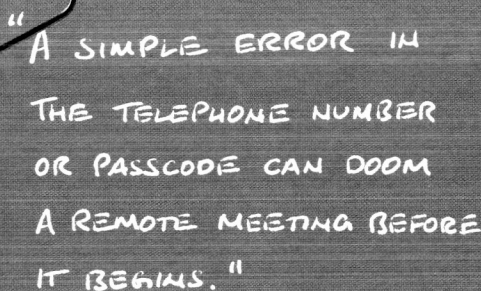 "A SIMPLE ERROR IN
THE TELEPHONE NUMBER
OR PASSCODE CAN DOOM
A REMOTE MEETING BEFORE
IT BEGINS."